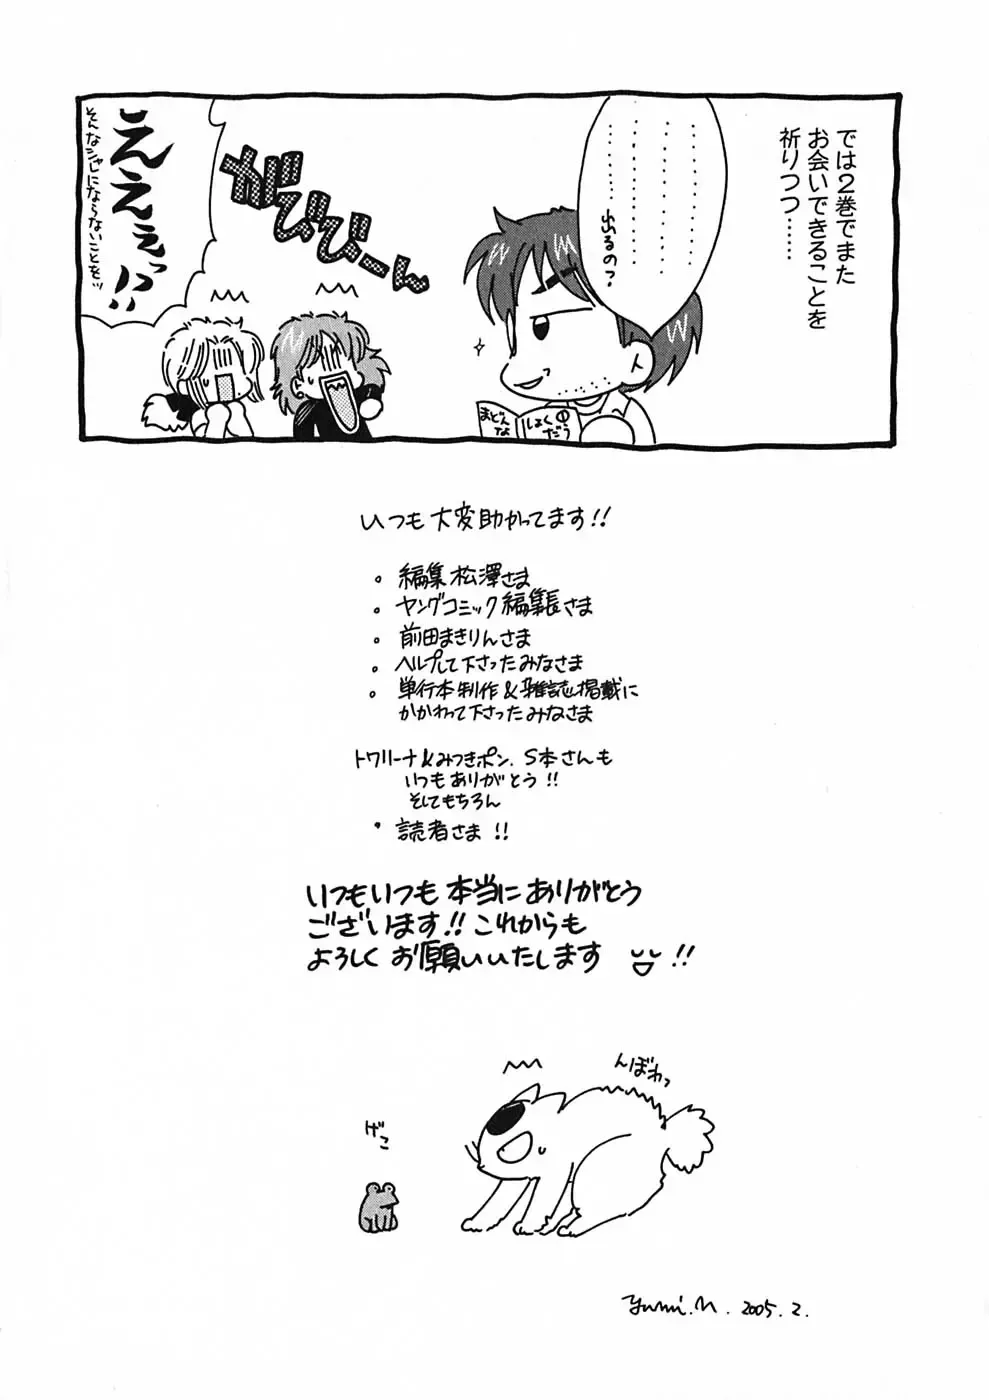 では2巻でまた
お会いできることを
祈りつつ……
………………
………………
………………
……出るのー?
まどんな
しょくだう
がびびーん
えええっ!!
そんなシャレにならないことをッ
いつも大変助かってます!!
。編集松澤さま
。ヤングコミック編集長さま
。前田まきりんさま
。ヘルプして下さったみなさま
。単行本制作&雑誌掲載に
かかわって下さったみなさま
トワリーナ&みつきポン、S本さんも
いつもありがとう!!
そしてもちろん
・読者さま!!
いつもいつも本当にありがとう
ございます!!これからも
よろしくお願いいたします!!
んぼわっ
げこ
Yumi.N.2005.2.